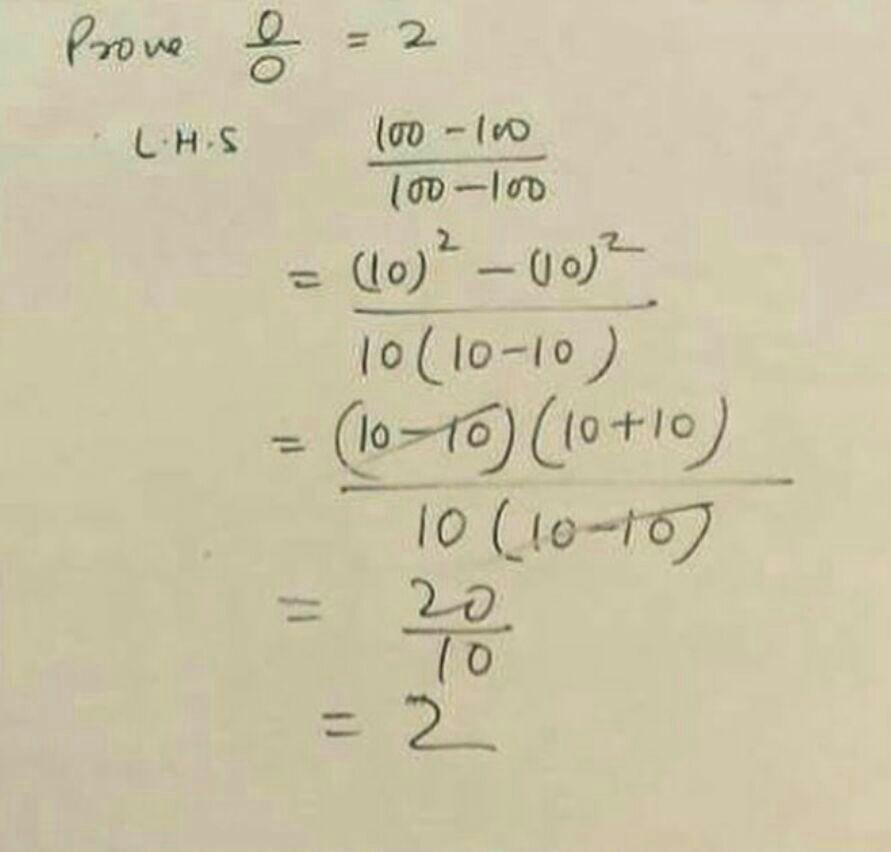 Prove 0/0 = 2
L.H.S 100-100/100-100
= (10)² - (10)²/10(10-10)
= (10-10)(10+10)/10(10-10)
= 20/10
= 2